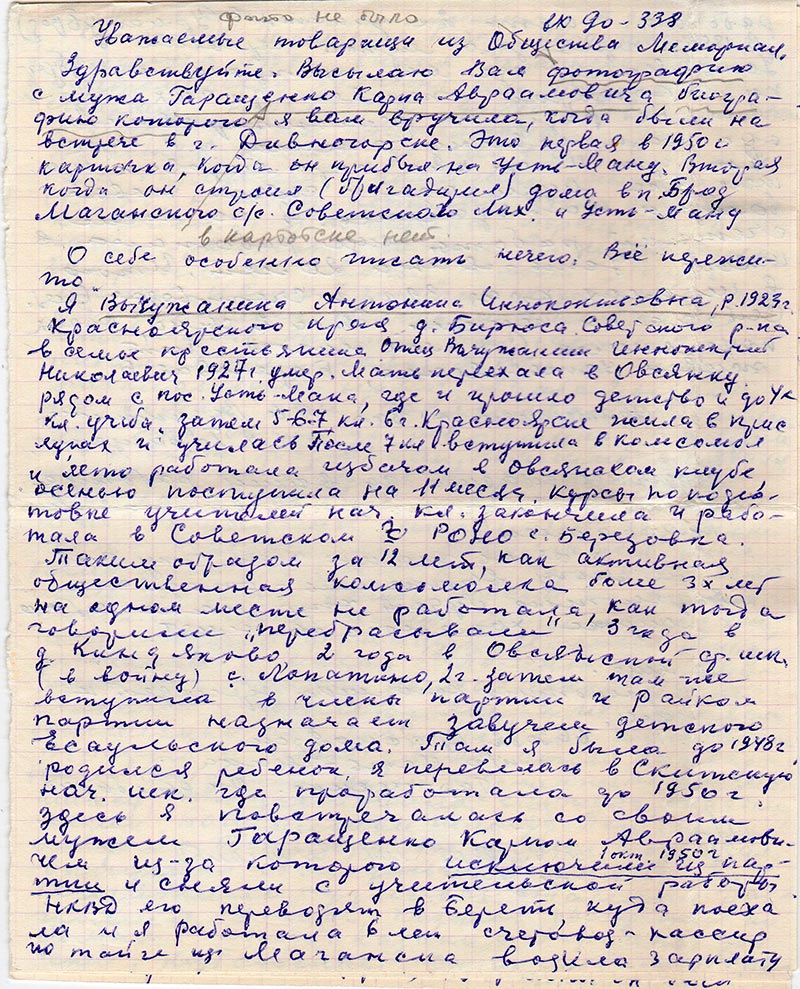 фото не было вх до - 338
Уважаемые товарищи из Общества Мемориал,
Здравствуйте. Высылаю Вам фотографию
с мужа Гаращенко Карпа Авраамовича биогра-
фию которого я вам вручила, когда были на
встрече в г. Дивногорске. Это первая в 1950 г
карточка, когда он прибыл на Усть-Ману. Вторая
когда он строил (бригадирил) дома в п. Брод
Маганского с/с. Советского и Усть-Ману
в картотеке нет.
О себе особенно писать нечего. Всё пережи-
то
Я Вычужанина Антонина Иннокентьевна, р 1923 г.
Красноярского края д. Бирюса Советского р-на
в семье крестьянина отец Вычужанин Иннокентий
Николаевич 1927 г. умер. Мать переехала в Овсянку
рядом с пос. Усть-Мана, где и прошло детство и до 4х
кл. учёба, затем 5-6-7 кл. в г. Красноярске жила в прис
лугах и училась После 7 кл вступила в комсомол
и лето работала избачом в Овсянском клубе
осенью поступила на 11 месяч. курсы по подго-
товке учителей нач. кл. закончила и рабо-
тала в Советском РОНО с. Березовка.
Таким образом за 12 лет, как активная
общественная комсомолка более 3х лет
на одном месте не работала, как тогда
говорили „перебрасывали" 3 года в
д. Киндяково 2 года в Овсянской ср. шк.
(в войну) с. Лопатино, 2 г. затем там же
вступила в члены партии и Райком
партии назначает завучем детского
Есаульского дома. Там я была до 1948 г
родился ребенок, я перевелась в Скитскую
нач. шк. где проработала до 1950 г.
Здесь я повстречалась со своим
мужем Гаращенко Карпом Авраамови-
чем из-за которого 1 окт. 1950 г исключили из пар-
тии и сняли с учительской работы.
НКВД его переводят в Береть, куда поеха
ла и я работала 6 лет счетовод-кассир
по тайге из Маганска возила зарплату